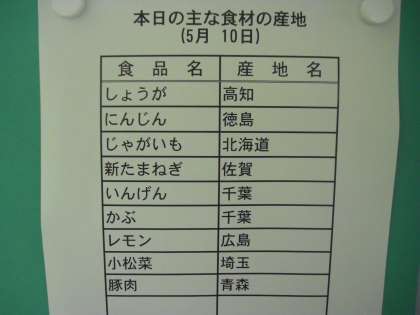 本日の主な食材の産地
(5月 10日)
食 品 名 産 地 名
しょうが 高知
にんじん 徳島
じゃがいも 北海道
新たまねぎ 佐賀
いんげん 千葉
かぶ 千葉
レモン 広島
小松菜 埼玉
豚肉 青森